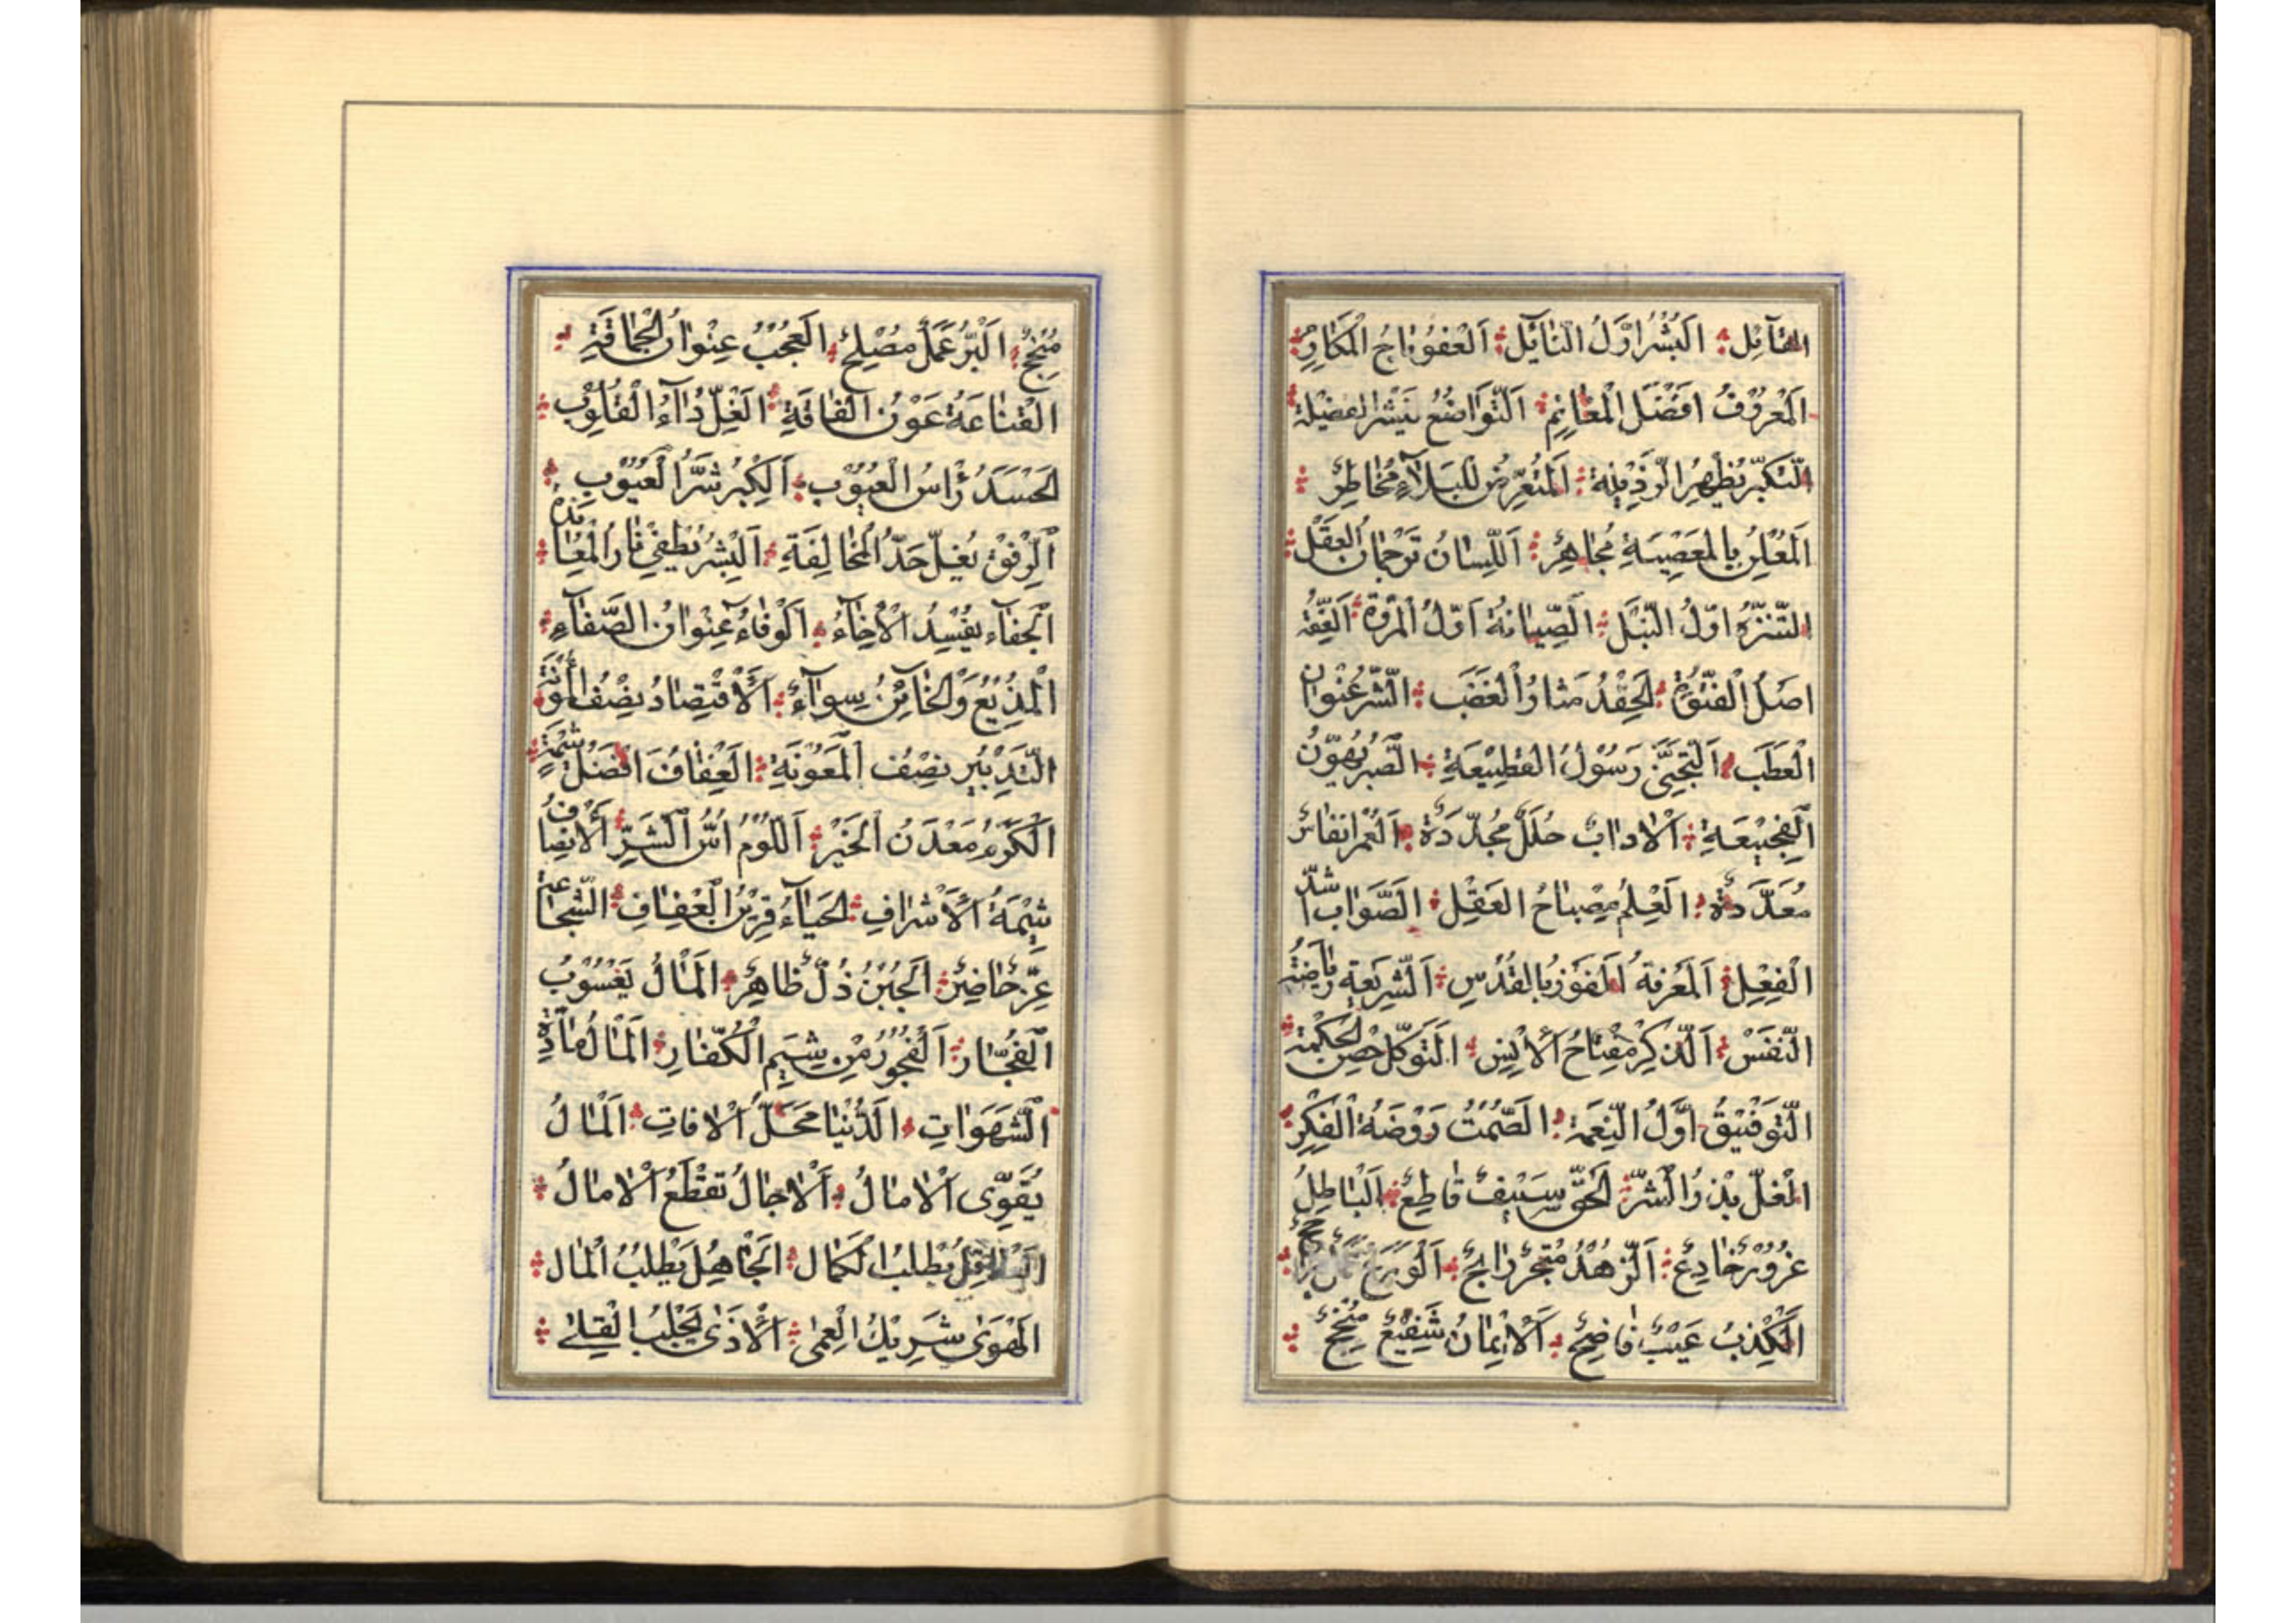 القآئل اَلْبُشْرُ اَوَّلُ النّائِلِ اَلْعَفْوُ تاجُ الْمَكارِمِ
اَلْمَعْرُوْفُ اَفْضَلُ الْمَغانِمِ اَلتَّواضُعُ يَنْشُرُ الفَضِيْلَة
اَلتَّكَبُّرُ يُظْهِرُ الرَّذِيْلَةِ اَلْمُتَعَرِّضُ لِلْبَلآءِ مُخاطِرٌ
اَلْمُعْلِنُ بِالْمَعْصِيَةِ مُجاهِرٌ اَللِّسانُ تَرْجُمانُ الْعَقْلِ
التَّنَزُّهُ اَوَّلُ النُّبْلِ اَلصِّيانَةُ اَوَّلُ الْمُرُوَّةِ اَلْعِفَّةُ
اَصْلُ الْفُتُوَّةِ اَلْحِقْدُ مَثارُ الْغَضَبِ اَلشَّرُّ عُنْوانُ
الْعَطَبِ اَلتَّجَنِّى رَسُوْلُ الْقَطِيْعَةِ الصَّبْرُ يُهَوِّنُ
الْفَجِيْعَةِ اَلْادابُ حُلَلٌ مُجَدَّدَةٌ اَلْعُمْرُ اَنْفاسٌ
مُعَدَّدَةٌ اَلْعِلْمُ مِصْباحُ الْعَقْلِ اَلصَّوابُ اَسَدُّ
الْفِعْلِ اَلْمَعْرِفَةُ اَلْفَوْزُ بِالْقُدْسِ اَلشَّرِيْعَةِ رِياضَةُ
النَّفْسِ اَلذِّكْرُ مِفْتاحُ الْاُنْسِ اَلتَّوَكُّلُ حِصْنُ الْحِكْمَةِ
التَّوْفِيْقُ اَوَّلُ النِّعْمَةِ اَلصَّمْتُ رَوْضَةُ الْفِكْرِ
الْغِلُّ بِذْرُ الشَّرِّ اَلْحَقُّ سَيْفٌ قاطِعٌ اَلْباطِلُ
غُرُوْرٌ خادِعٌ اَلزُّهْدُ مُتَّجَرٌ رابِحٌ اَلْوَرَعُ
الْكِذْبُ عَيْبٌ فاضِحٌ اَلْاِيْمانُ شَفِيْعٌ مُنْجِحٌ
مُنْجِحٌ اَلْبِرُّ عَمَلٌ مُصْلِحٌ اَلْعُجْبُ عِنْوانُ الْحَماقَةِ
الْقَناعَةُ عَوْنُ الْفاقَةِ اَلْغِلُّ دآءُ الْقُلُوْبِ
الْحَسَدُ رَأْسُ الْعُيُوْبِ اَلْكِبْرُ شَرُّ الْعُيُوْبِ
اَلرِّفْقُ يَفُلُّ حَدَّ الْمُخالِفَةِ اَلْبِشْرُ يُطْفِىْ نارَ الْمُعانَدَة
اَلْجَفآء يُفْسِدُ الْاِخآءُ اَلْوَفآءُ عُنْوانُ الصَّفآءِ
الْمُذِيْعُ وَالْخآئِنُ سِوآءٌ اَلْاِقْتِصادُ نِصْفُ الْمَؤُنَةِ
التَّدْبِيْر نِصْفُ الْمَعُوْنَةِ اَلْعِفافُ اَفْضَلُ شِيْمَةٍ
اَلْكَرَمُ مَعْدَنُ الْخَيْرِ اَللُّوْمُ اُسُّ الشَّرِّ اَلْاِنْصافُ
شِيْمَةُ الْاَشْرافِ اَلْحَيآءُ قَرِيْنُ الْعِفافِ الشَّجاعَةُ
عِزٌّ حاضِرٌ اَلْجُبْنُ ذُلٌّ ظاهِرٌ اَلْمالُ يَعْسُوْبُ
الْفُجّارِ اَلْفُجُوْرُ مِنْ شِيَمِ الْكُفّارِ اَلْمالُ مآدَّةُ
الشَّهَواتِ اَلدُّنْيا مَحَلُّ الْافاتِ اَلْمالُ
يُقَوِّى الْامالُ اَلْاجالُ تَقْطَعُ الْامالُ
يَطْلُبُ الْكَمال اَلْجاهِلُ يَطْلُبُ الْمال
الْهَوٰى شَرِيْكُ الْعَمٰى اَلْاَذٰى يَجْلِبُ الْقِلٰى